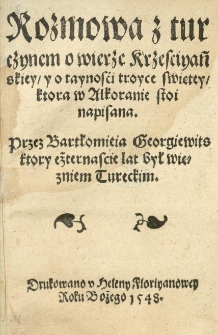 Rozmowa z tur
cżynem o wierże Krżesciyań
skiey/ y o taynośći troyce swietey/
ktora w Alkoranie stoi
napisana.
Przez Bartłomieia Georgiewits
ktory cżternascie lat był wię-
zniem Tureckim.
Drukowano v Heleny Florianowey
Roku Bożego 1548.